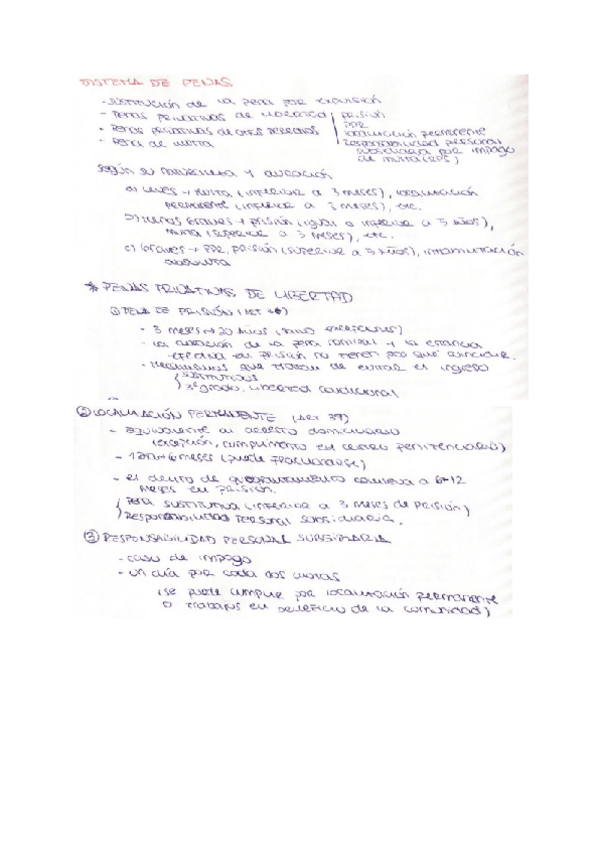 SISTEMA DE PENAS
- Sustitución de la pena por expulsión
- Penas privativas de libertad | prisión
PPR
localización permanente
Responsabilidad personal
subsidiaria por impago
de multa (RPS)
- Penas privativas de otros derechos
- Pena de multa
Según su naturaleza y duración
a) Leves → Multa (inferior a 3 meses), localización
permanente (inferior a 3 meses), etc.
b) Menos graves → prisión (igual o inferior a 5 años),
multa (superior a 3 meses), etc.
c) Graves → PPR, prisión (superior a 5 años), inhabilitación
absoluta
* PENAS PRIVATIVAS DE LIBERTAD
① PENA DE PRISIÓN (ART 36)
- 3 meses → 20 años (salvo excepciones)
- La duración de la pena nominal y la estancia
efectiva en prisión no tienen por qué coincidir.
- Mecanismos que tratan de evitar el ingreso
sustitutivos
3º grado, libertad condicional
② LOCALIZACIÓN PERMANENTE (Art 37)
- Equivalente al arresto domiciliario
(excepción, cumplimiento en centro penitenciario)
- 1 día → 6 meses (puede fraccionarse)
- El delito de quebrantamiento conlleva a 6-12
meses en prisión.
Pena sustitutiva (inferior a 3 meses de prisión)
Responsabilidad personal subsidiaria.
③ RESPONSABILIDAD PERSONAL SUBSIDIARIA
- caso de impago
- un día por cada dos cuotas
(se puede cumplir por localización permanente
o trabajos en beneficio de la comunidad)